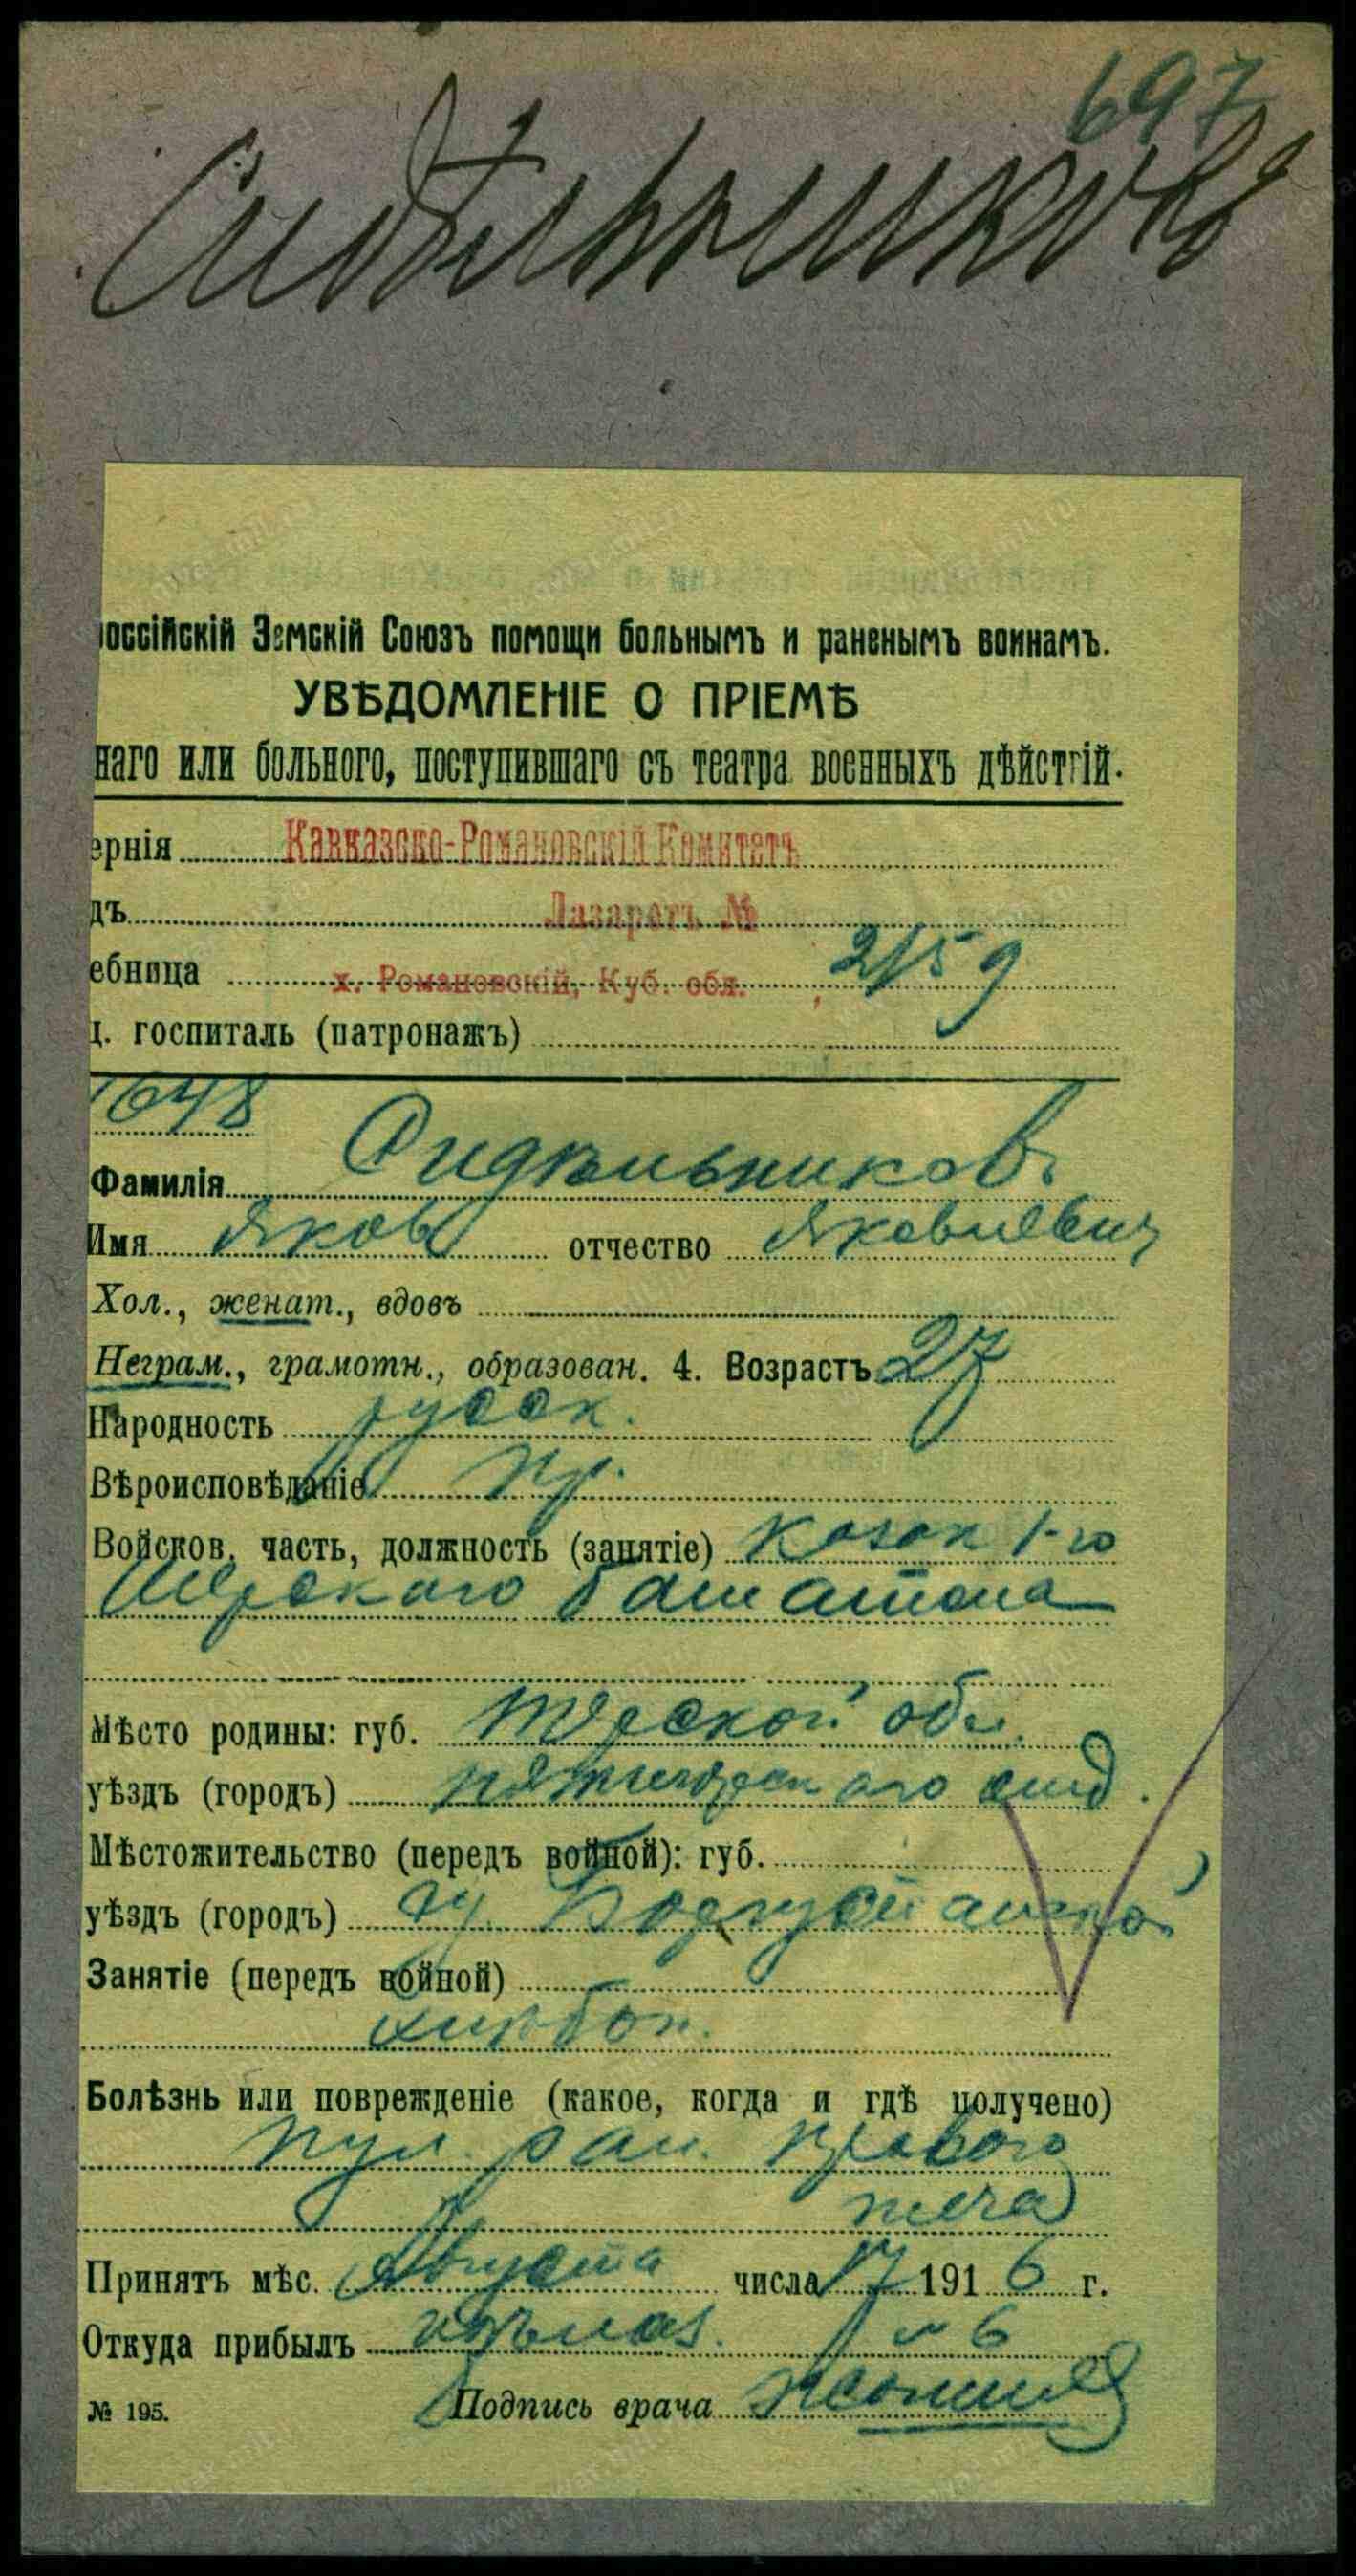 697
Сидѣльниковъ
россійскій Земскій Союзъ помощи больнымъ и раненымъ воинамъ.
УВѢДОМЛЕНІЕ О ПРІЕМѢ
наго или больного, поступившаго съ театра военныхъ дѣйствій.
ернія Кавказско-Романовскій Комитетъ
дъ Лазаретъ №
ебница х. Романовскій, Куб. обл. 2159
ц. госпиталь (патронажъ)
1648
Фамилія Сидѣльников
Имя Яков отчество Яковлевич
Хол., женат., вдовъ
Неграм., грамотн., образован. 4. Возрастъ 27
Народность русск.
Вѣроисповѣданіе пр.
Войсков. часть, должность (занятіе) Козак 1-го
Терскаго баталiона
Мѣсто родины: губ. Терской обл.
уѣздъ (городъ) пятигорскаго отд.
Мѣстожительство (передъ войной): губ.
уѣздъ (городъ)
Занятіе (передъ войной)
хлѣбоп.
Болѣзнь или поврежденіе (какое, когда и гдѣ получено)
пул. ран. праваго
плеча
Принятъ мѣс. Августа числа 17 1916 г.
Откуда прибылъ 6
№ 195. Подпись врача
www.gwar.mil.ru